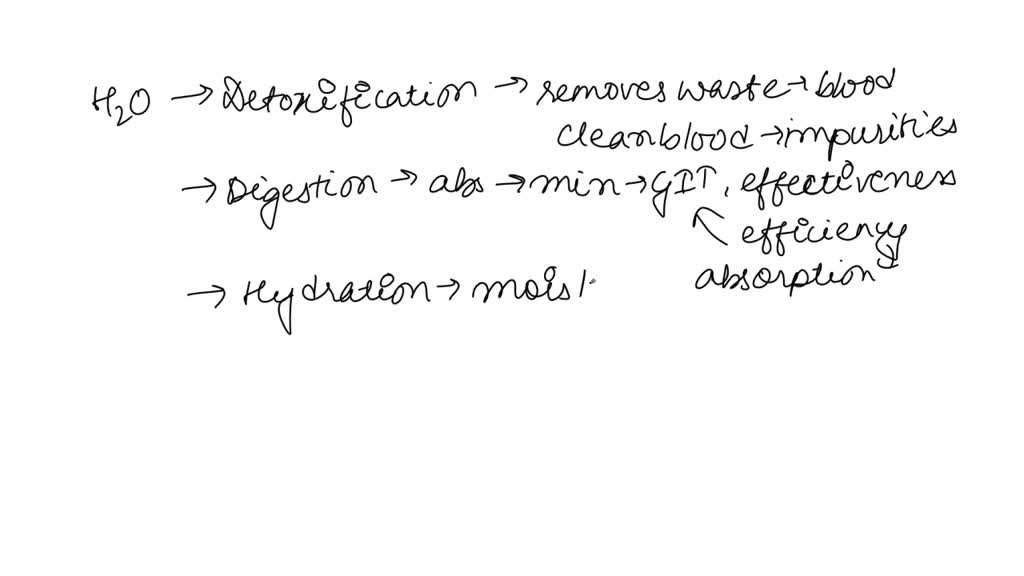 H2O → Detoxification → removes waste → blood
clean blood → impurities
→ Digestion → abs → min → GIT, effectiveness
efficiency
absorption
→ Hydration → mois